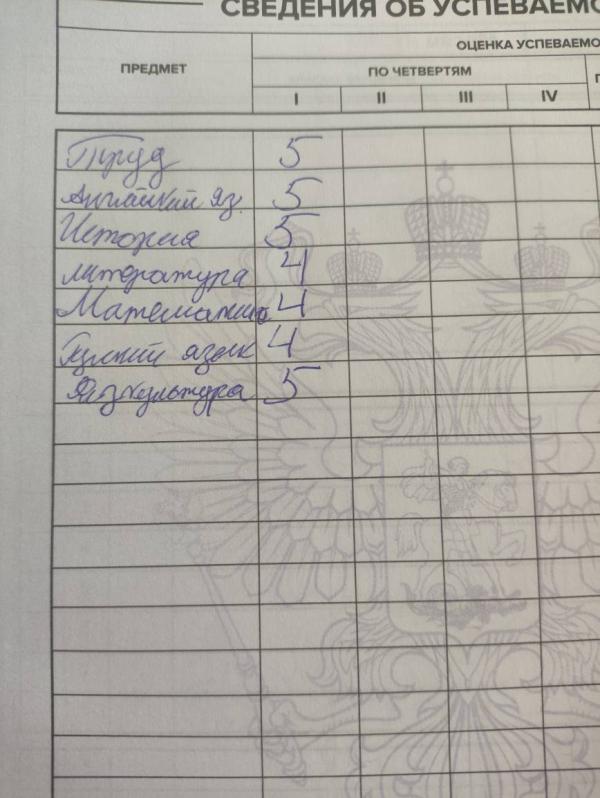 СВЕДЕНИЯ ОБ УСПЕВАЕМО
ПРЕДМЕТ
ОЦЕНКА УСПЕВАЕМО
ПО ЧЕТВЕРТЯМ
I II III IV
Труд 5
Английский яз. 5
История 5
литература 4
Математика 4
Русский язык 4
Физкультура 5